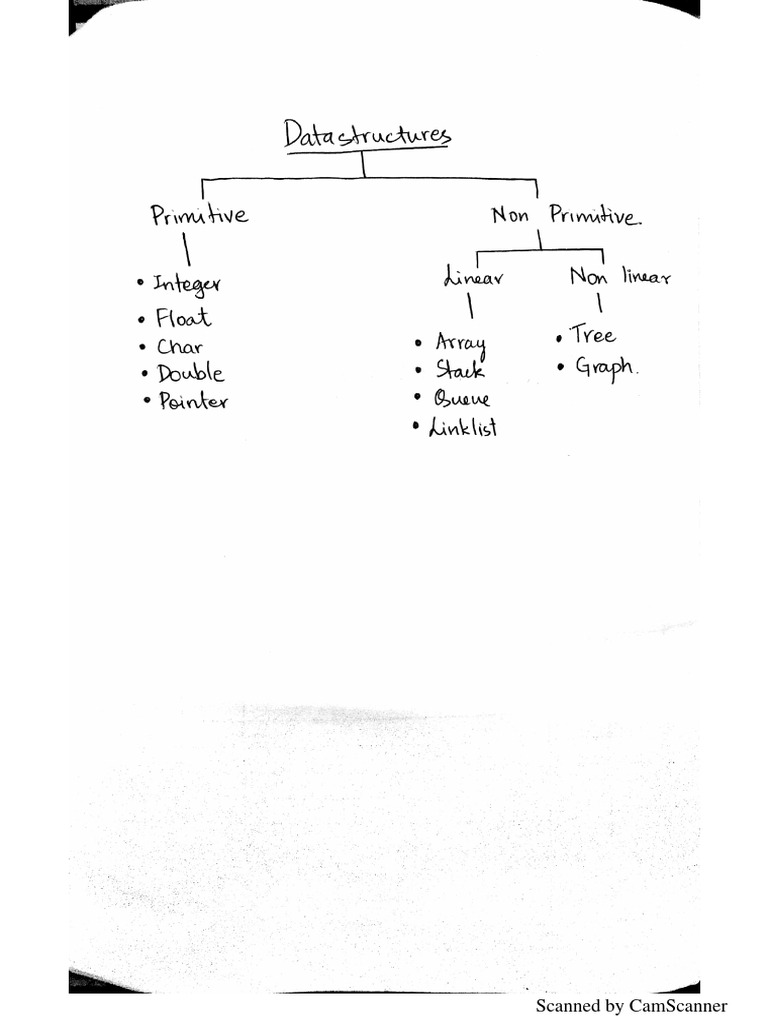 Datastructures
Primitive
Non Primitive.
Linear
Non linear
• Integer
• Float
• Char
• Double
• Pointer
• Array
• Stack
• Queue
• Linklist
• Tree
• Graph.
Scanned by CamScanner